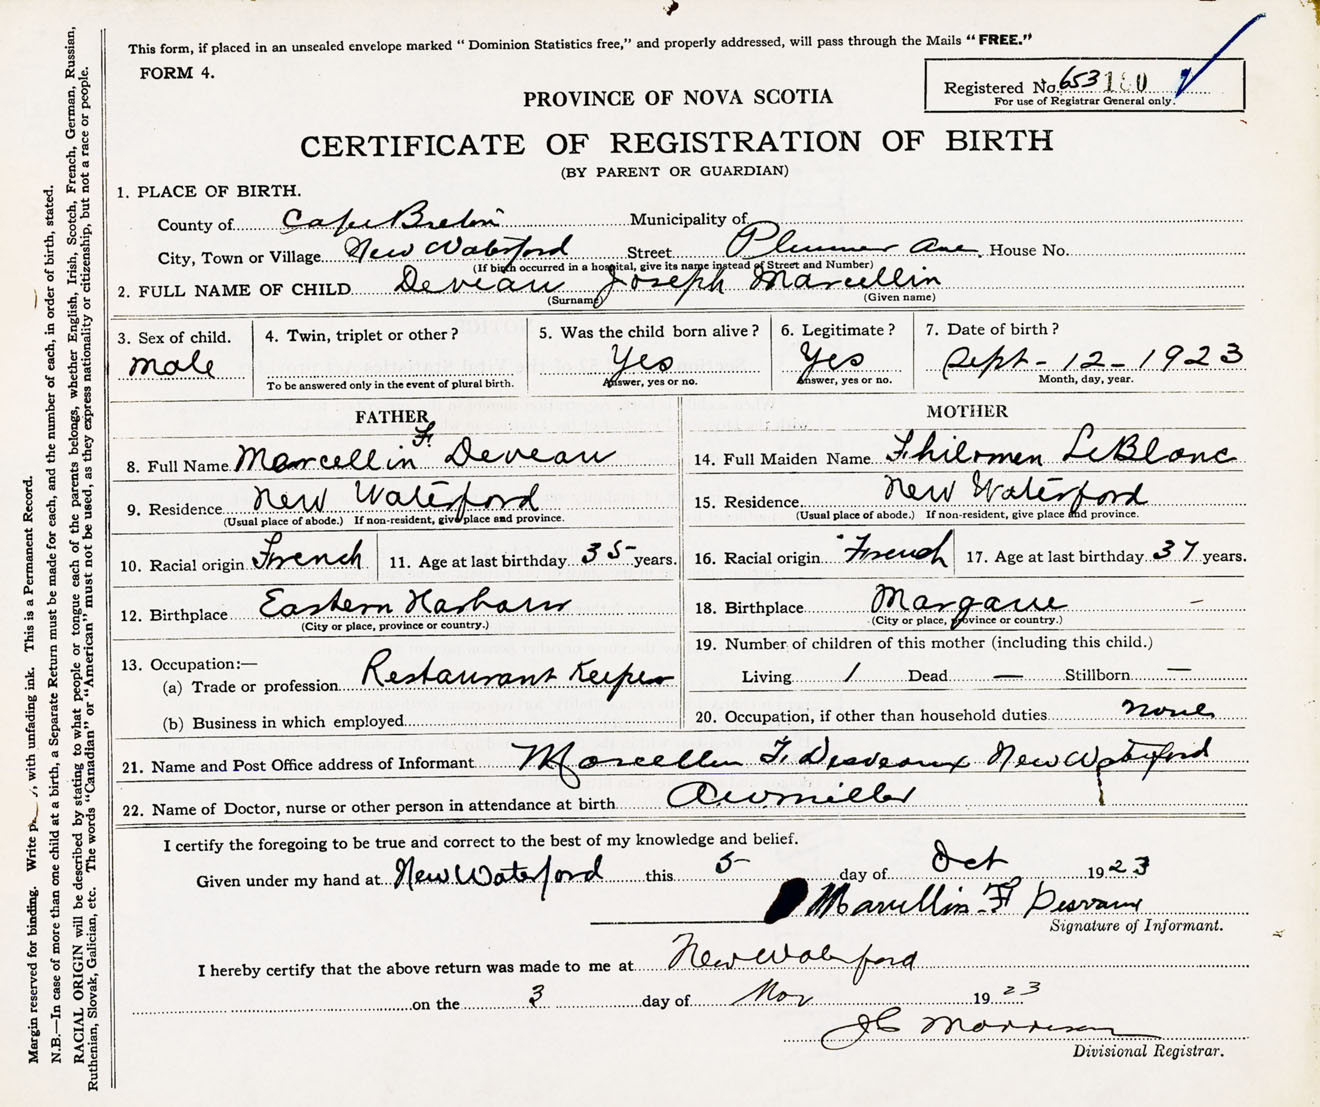 This form, if placed in an unsealed envelope marked "Dominion Statistics free," and properly addressed, will pass through the Mails "FREE."
FORM 4.
Registered No. 653
For use of Registrar General only.
PROVINCE OF NOVA SCOTIA
CERTIFICATE OF REGISTRATION OF BIRTH
(BY PARENT OR GUARDIAN)
1. PLACE OF BIRTH.
County of Cape Breton Municipality of
City, Town or Village New Waterford Street Plummer Ave. House No.
(If birth occurred in a hospital, give its name instead of Street and Number)
2. FULL NAME OF CHILD Deveau Joseph Marcellin
(Surname) (Given name)
3. Sex of child. 4. Twin, triplet or other? 5. Was the child born alive? 6. Legitimate? 7. Date of birth?
male Yes Yes Sept - 12 - 1923
To be answered only in the event of plural birth. Answer, yes or no. Answer, yes or no. Month, day, year.
FATHER MOTHER
8. Full Name Marcellin F. Deveau 14. Full Maiden Name Philomen LeBlanc
9. Residence New Waterford 15. Residence New Waterford
(Usual place of abode.) If non-resident, give place and province. (Usual place of abode.) If non-resident, give place and province.
10. Racial origin French 11. Age at last birthday 35 years. 16. Racial origin French 17. Age at last birthday 37 years.
12. Birthplace Eastern Harbour 18. Birthplace Margaree -
(City or place, province or country.) (City or place, province or country.)
19. Number of children of this mother (including this child.)
13. Occupation:—
(a) Trade or profession Restaurant Keeper Living 1 Dead — Stillborn —
(b) Business in which employed 20. Occupation, if other than household duties none
21. Name and Post Office address of Informant Marcellin F. Desveaux New Waterford
22. Name of Doctor, nurse or other person in attendance at birth A W Miller
I certify the foregoing to be true and correct to the best of my knowledge and belief.
Given under my hand at New Waterford this 5 day of Oct 1923
Marcellin F Desveaux
Signature of Informant.
I hereby certify that the above return was made to me at New Waterford
on the 3 day of Nov 1923
J C Morrison
Divisional Registrar.
Margin reserved for binding. Write with unfading ink. This is a Permanent Record.
N.B.—In case of more than one child at a birth, a Separate Return must be made for each, and the number of each, in order of birth, stated.
RACIAL ORIGIN will be described by stating to what people or tongue each of the parents belongs, whether English, Irish, Scotch, French, German, Russian,
Ruthenian, Slovak, Galician, etc. The words "Canadian" or "American" must not be used, as they express nationality or citizenship, but not a race or people.